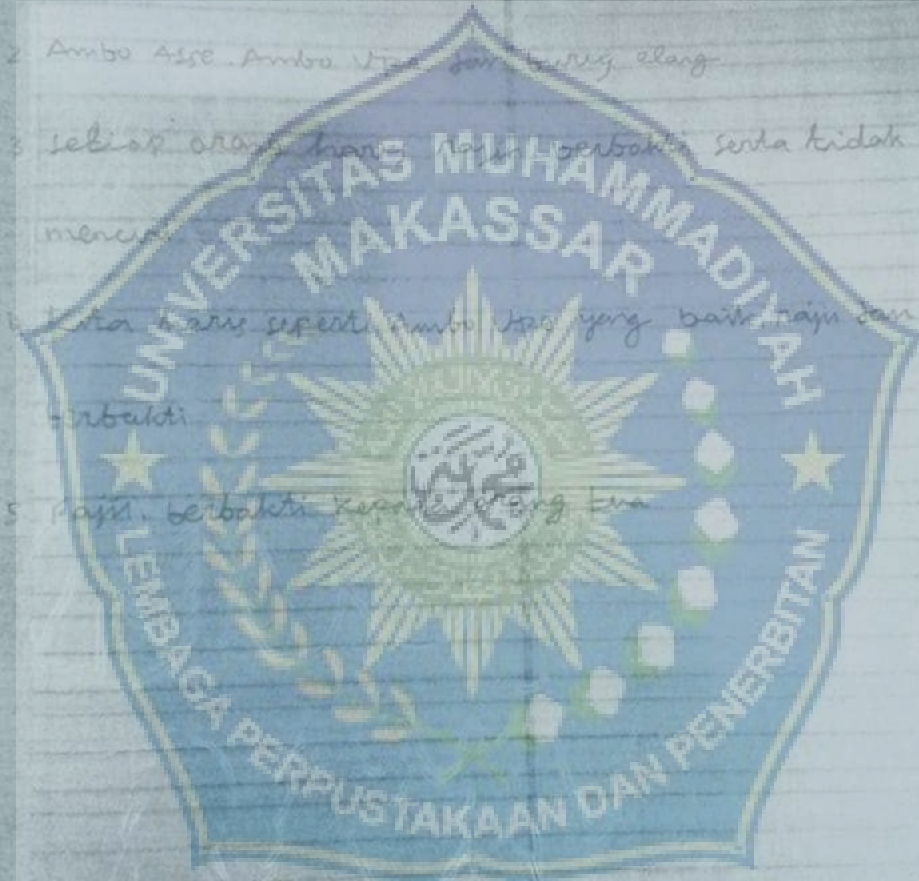 2 Ambo Asse Ambo Upe dan burung elang
3 setiap orang harus rajin berbakti serta tidak
mencuri
kita harus seperti Ambo Upe yang baik rajin dan
berbakti
5 Rajin, berbakti kepada orang tua
UNIVERSITAS MUHAMMADIYAH
MAKASSAR
LEMBAGA PERPUSTAKAAN DAN PENERBITAN